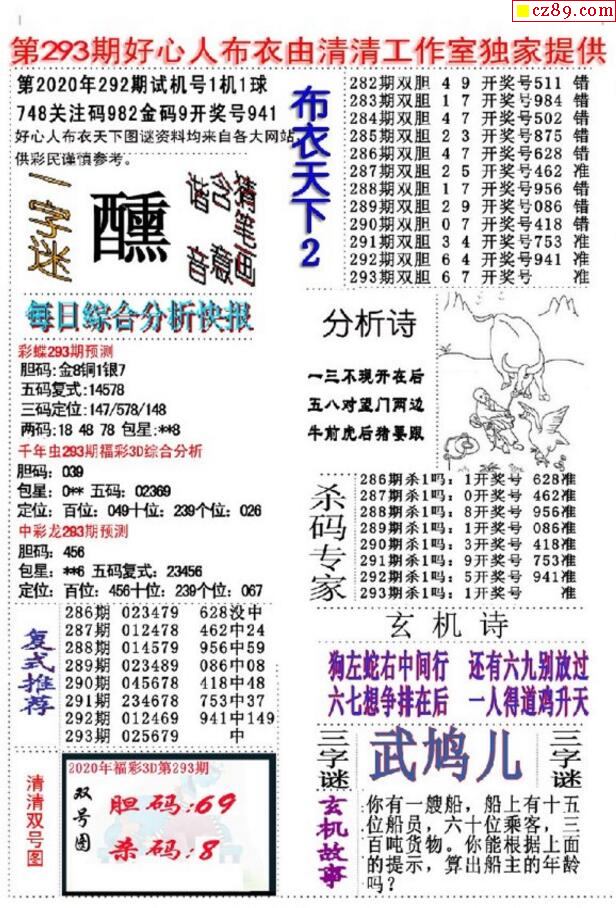 cz89.com
第293期好心人布衣由清清工作室独家提供
第2020年292期试机号1机1球
748关注码982金码9开奖号941
好心人布衣天下图谜资料均来自各大网站,
供彩民谨慎参考。
一字迷
醺
猜笔画
含意
谐音
布衣天下2
282期双胆 4 9 开奖号511 错
283期双胆 1 7 开奖号984 错
284期双胆 4 7 开奖号502 错
285期双胆 2 3 开奖号875 错
286期双胆 4 7 开奖号628 错
287期双胆 2 5 开奖号462 准
288期双胆 1 7 开奖号956 错
289期双胆 2 9 开奖号086 错
290期双胆 0 7 开奖号418 错
291期双胆 3 4 开奖号753 准
292期双胆 6 4 开奖号941 准
293期双胆 6 7 开奖号 准
每日综合分析快报
彩蝶293期预测
胆码:金8铜1银7
五码复式:14578
三码定位:147/578/148
两码:18 48 78 包星:**8
千年虫293期福彩3D综合分析
胆码：039
包星：0** 五码：02369
定位：百位：049十位：239个位：026
中彩龙293期预测
胆码：456
包星：**6 五码复式：23456
定位：百位：456十位：239个位：067
分析诗
一三不现开在后
五八对望门两边
牛前虎后猪要跟
杀码专家
286期杀1吗：1开奖号 628准
287期杀1吗：0开奖号 462准
288期杀1吗：8开奖号 956准
289期杀1吗：1开奖号 086准
290期杀1吗：3开奖号 418准
291期杀1吗：9开奖号 753准
292期杀1吗：5开奖号 941准
293期杀1吗：1开奖号 准
复式推荐
286期 023479 628没中
287期 012478 462中24
288期 014579 956中59
289期 023489 086中08
290期 045678 418中48
291期 234678 753中37
292期 012469 941中149
293期 025679 中
玄机诗
狗左蛇右中间行 还有六九别放过
六七想争排在后 一人得道鸡升天
三字谜
武鸠儿
三字谜
清清双号图
2020年福彩3D第293期
双号图
胆码:69
杀码:8
玄机故事
你有一艘船，船上有十五
位船员，六十位乘客，三
百吨货物。你能根据上面
的提示，算出船主的年龄
吗？